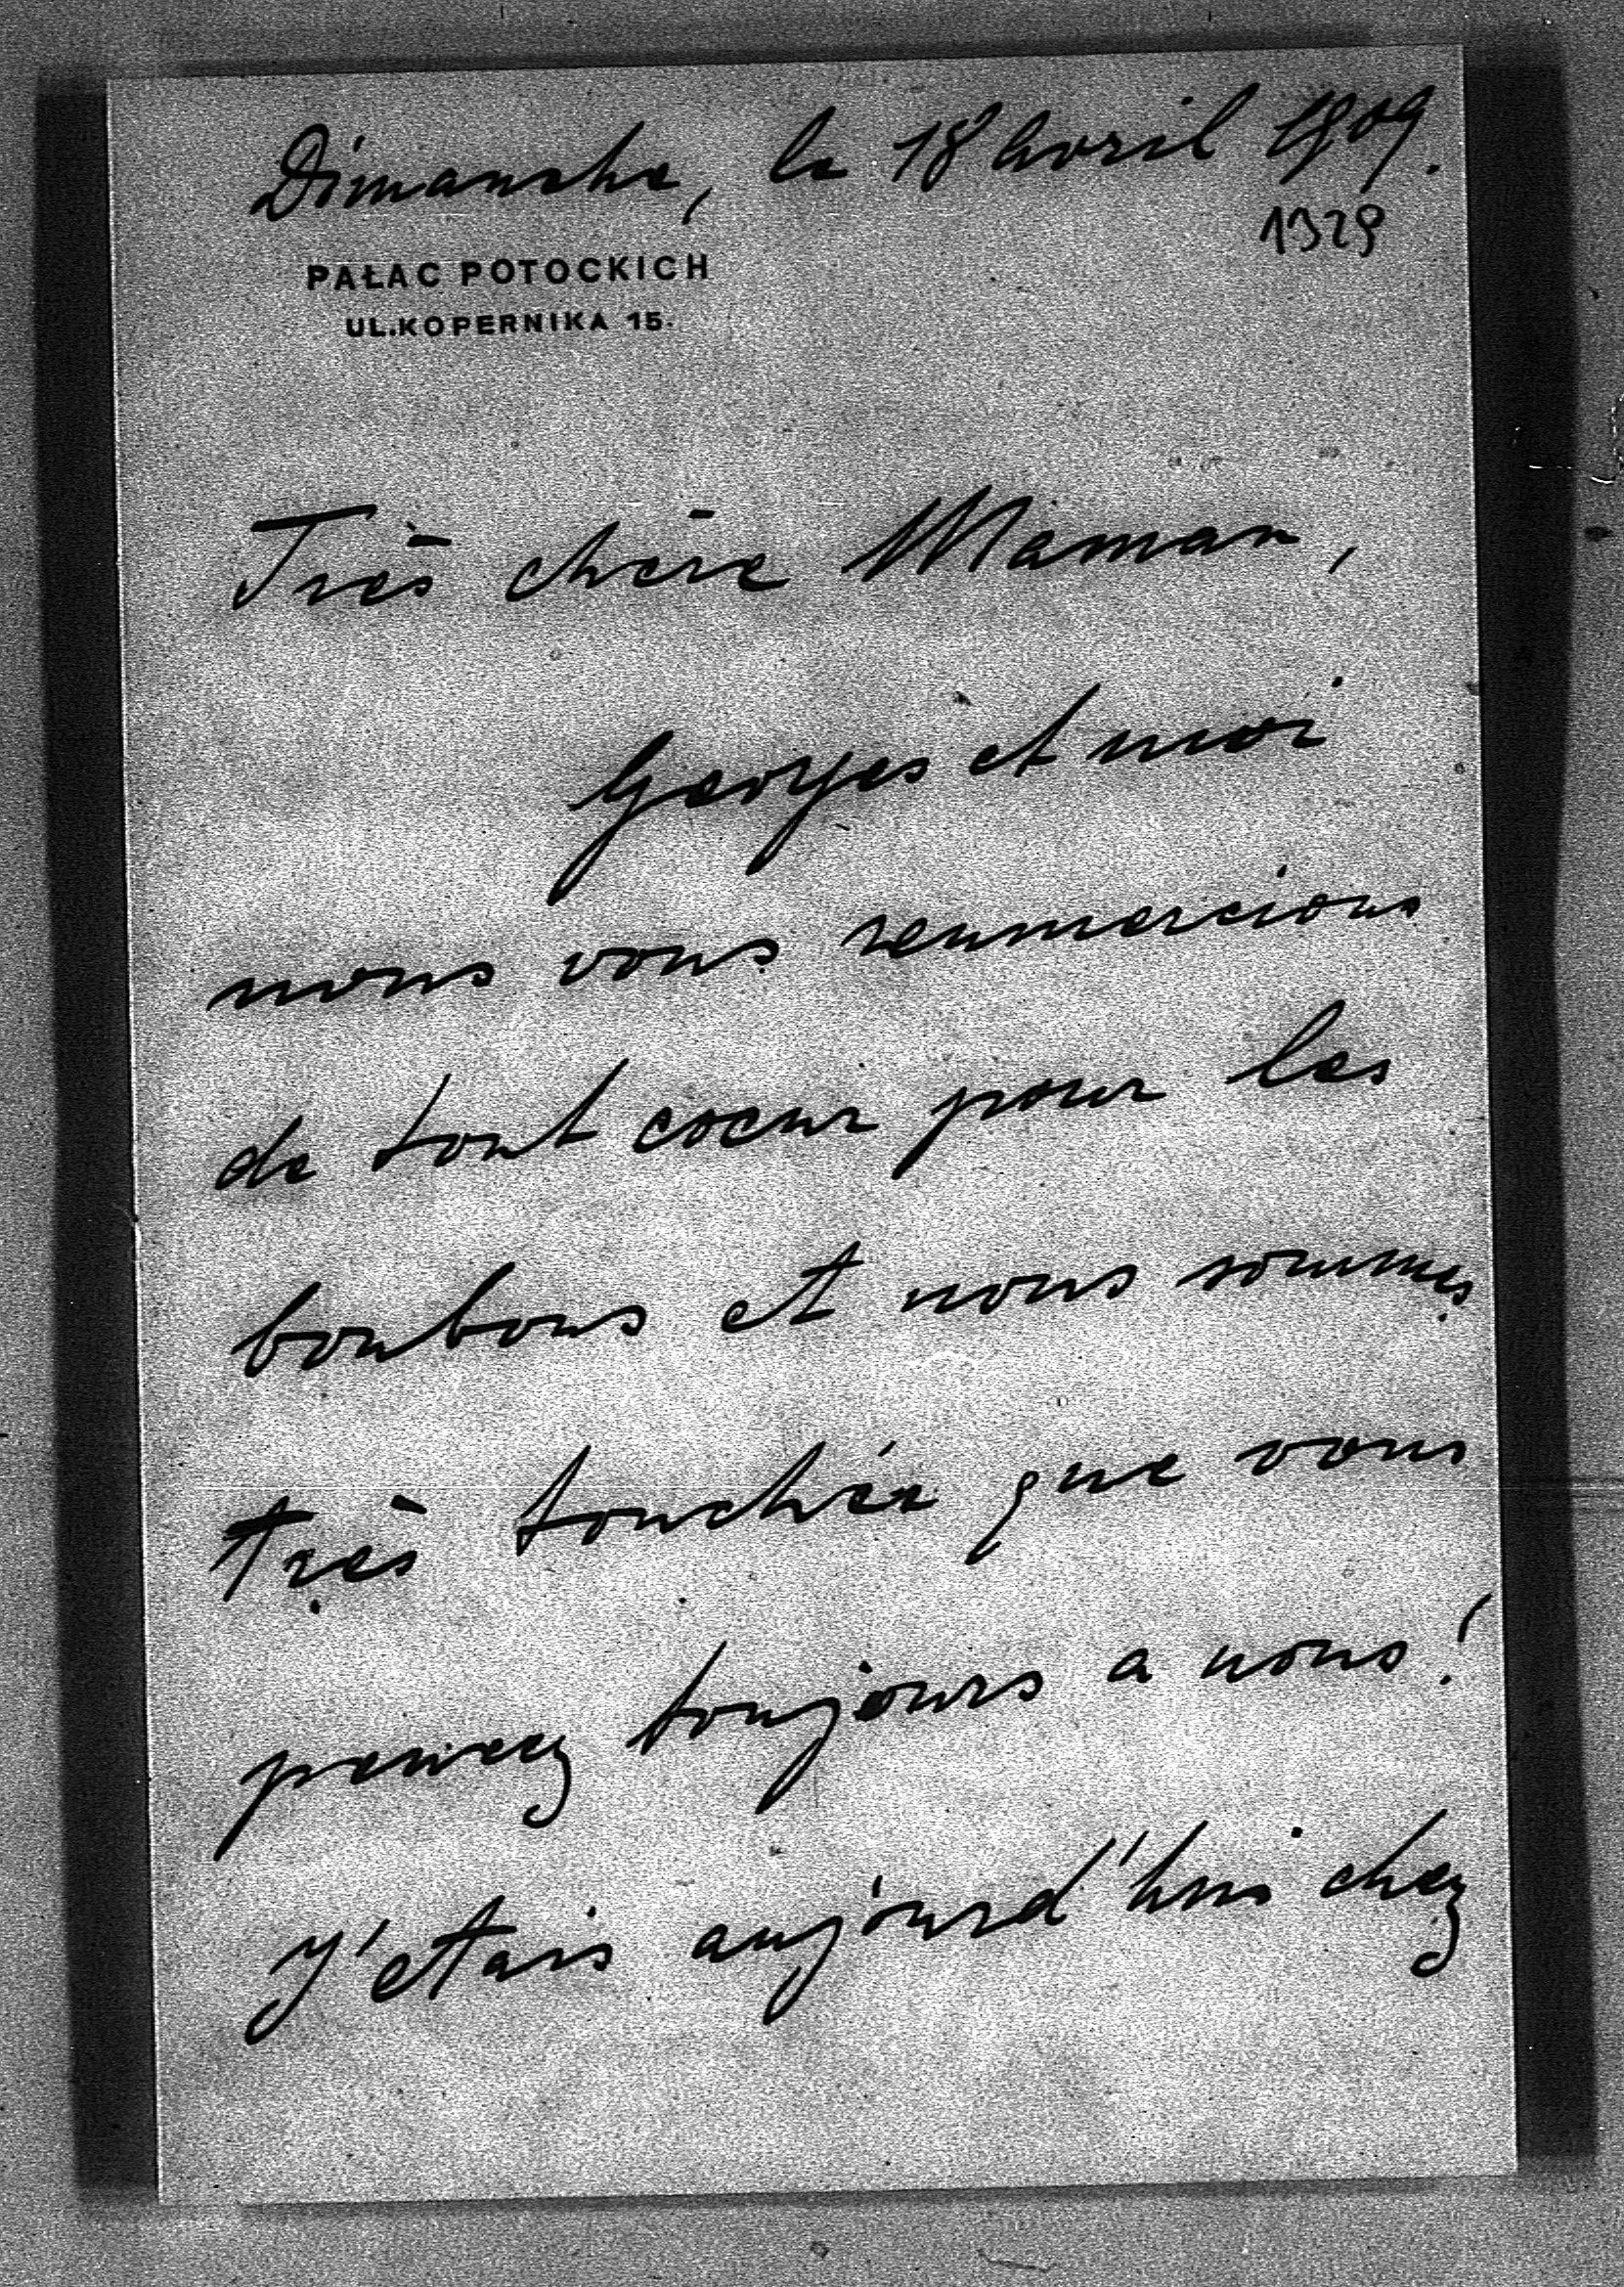 Dimanche, le 18 Avril 1909.
1329
PAŁAC POTOCKICH
UL.KOPERNIKA 15.
Très chère Maman,
Georges et moi
nous vous renmercions
de tout coeur pour les
bonbons et nous sommes
très touchée que vous
pensez toujours a nous!
J'etais aujourd'hui chez